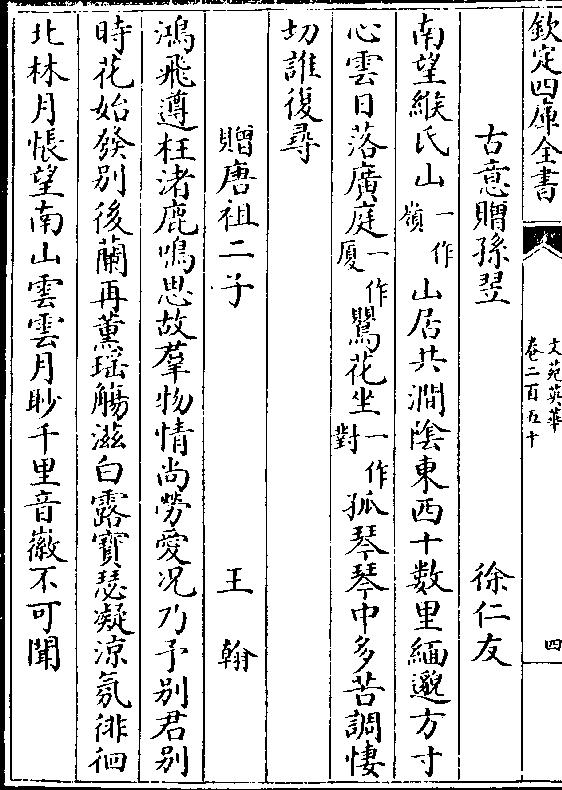 欽定四庫全書
文苑英華
卷二百五十
四
古意贈孫翌　徐仁友
南望緱氏山一作嶺山居共澗陰東西十數里緬邈方寸
心雲日落廣庭一作厦鶯花坐一作對孤琴琴中多苦調悽
切誰復尋
贈唐祖二子　王翰
鴻飛遵枉渚鹿鳴思故羣物情尚勞愛况乃予别君别
時花始發别後蘭再薰瑶觴滋白露寶瑟凝涼氛徘徊
北林月悵望南山雲雲月眇千里音徽不可聞